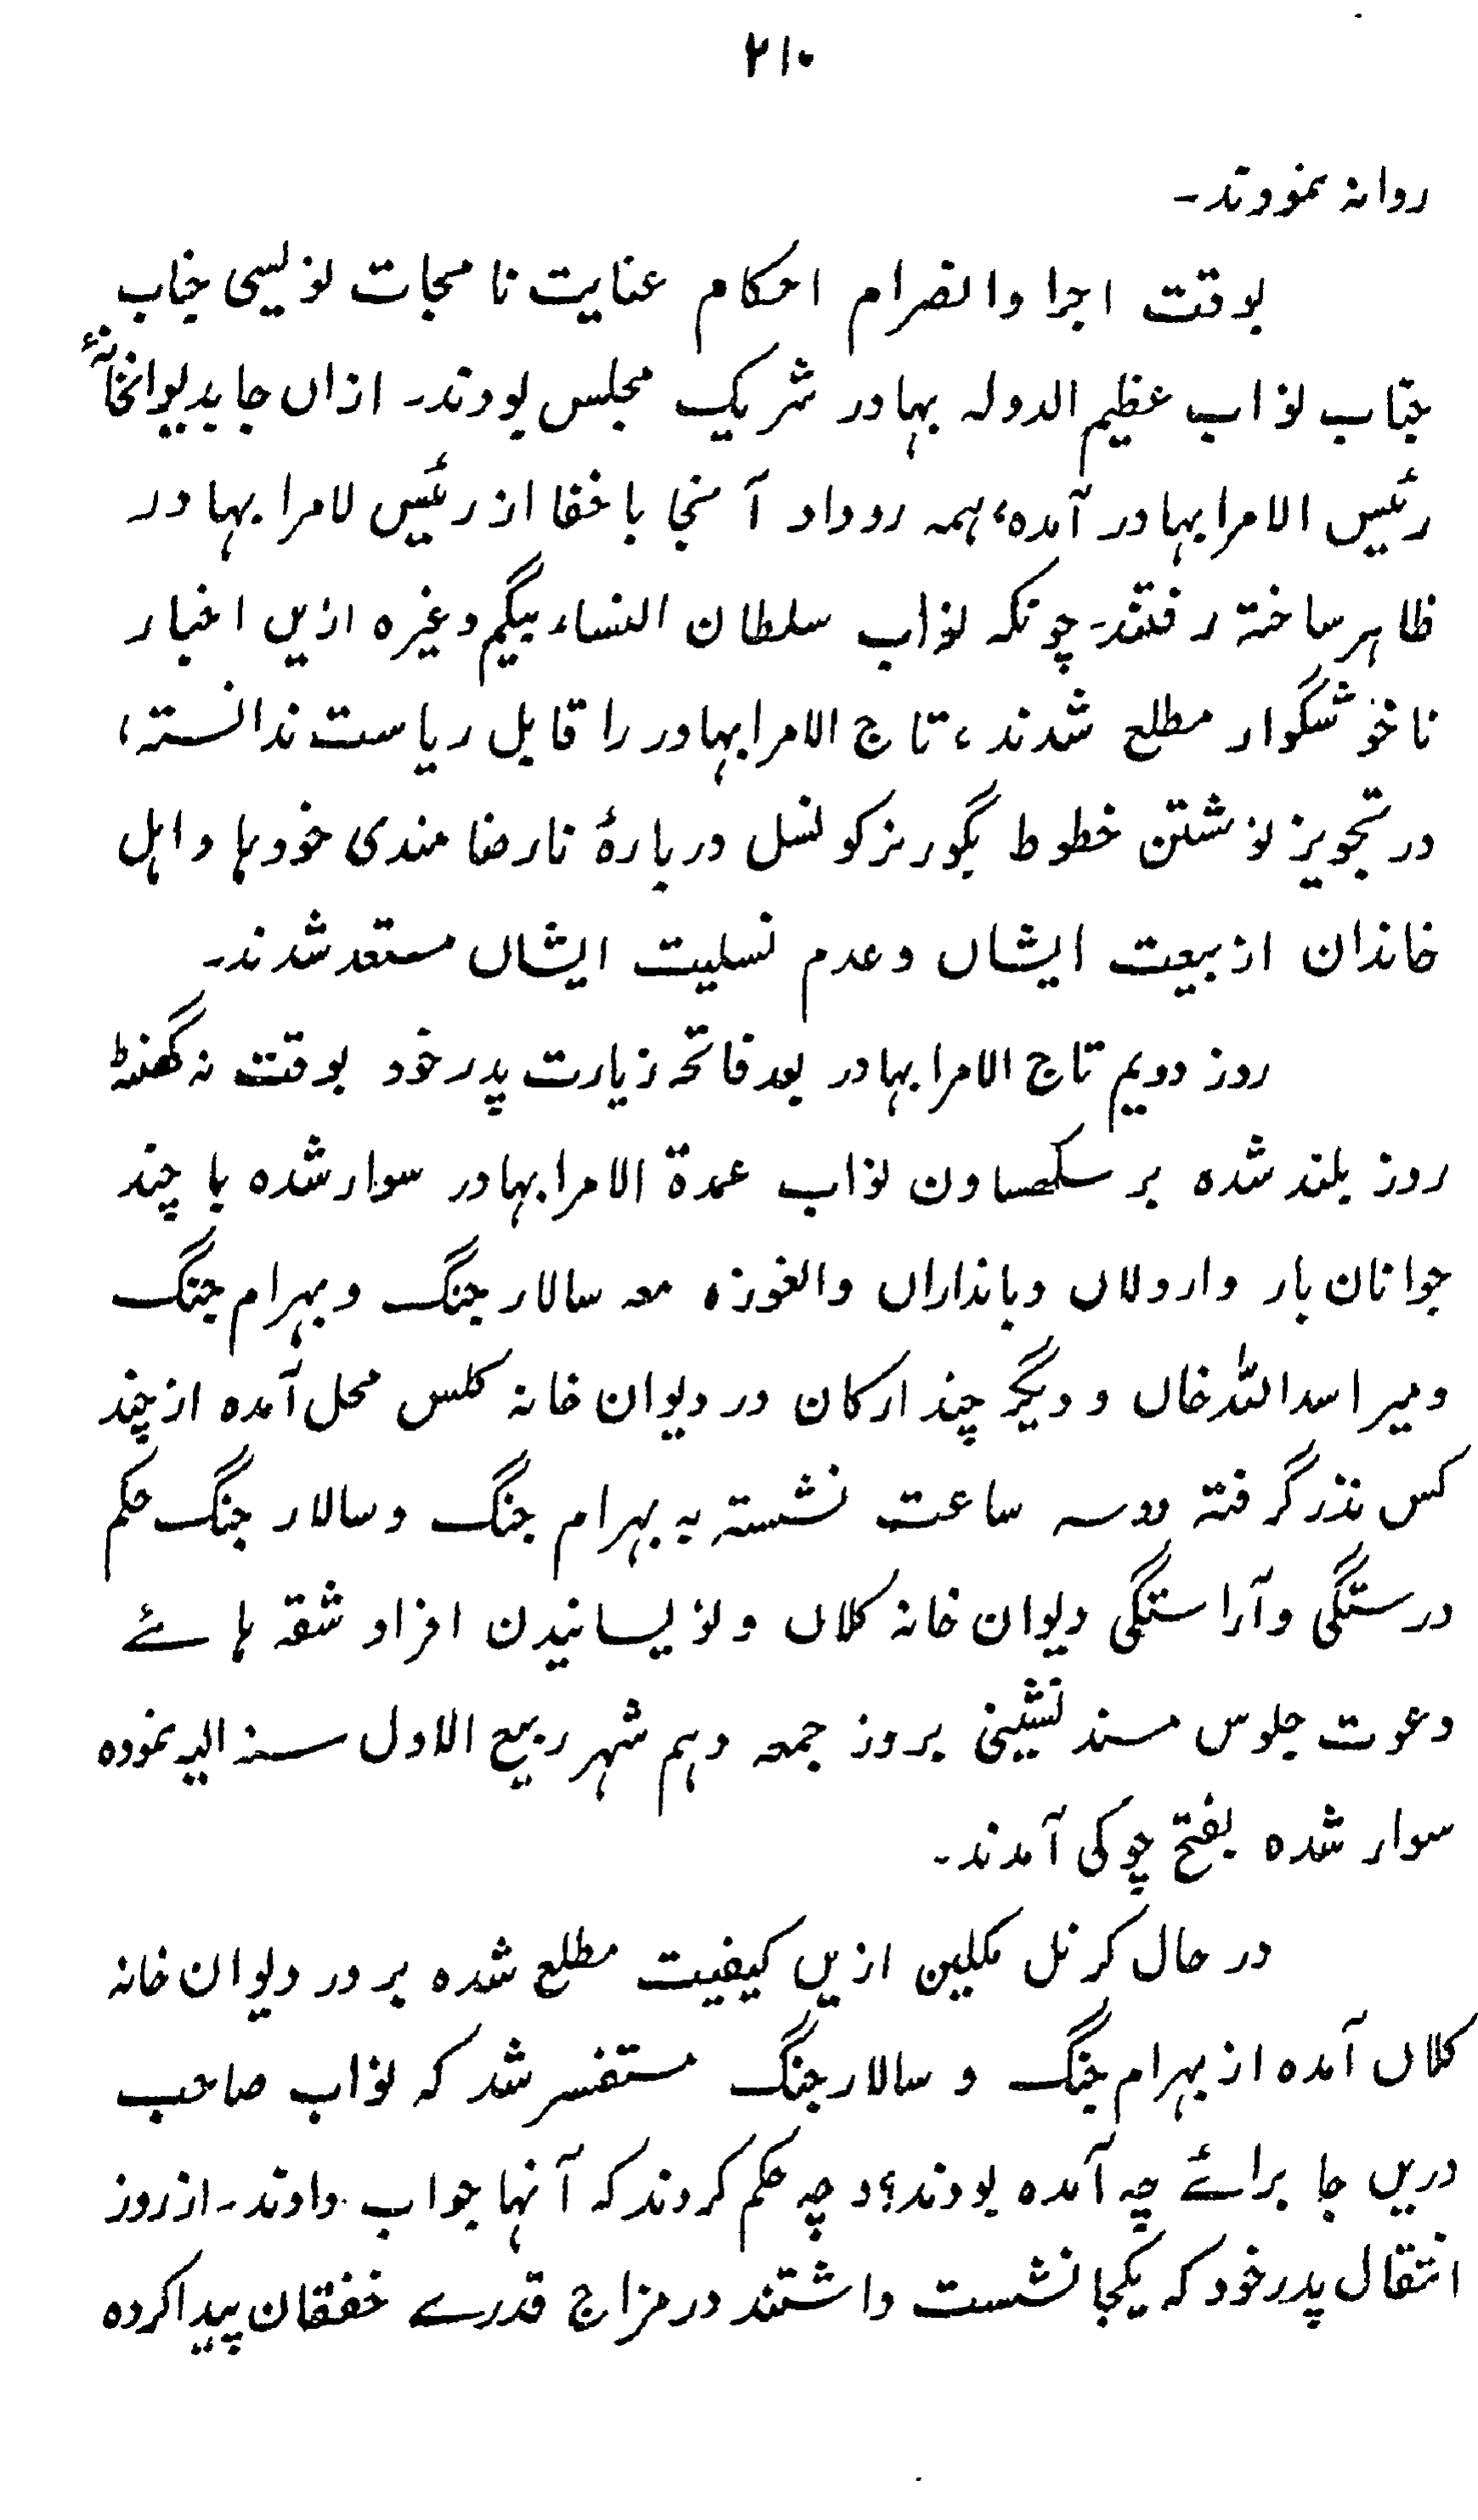 ۲۱۰
روانه نمودند۔
بوقت اجرا وانصرام احکام عنایت نامجات نویسی جناب
جناب نواب عظیم الدوله بهادر شریک مجلس بودند۔ ازاں جا بدیوانخانۂ
رئیس الامرا بهادر آمده، همه روداد آنجا باخفا از رئیس لامرا بهادر
ظاهر ساخته رفتند۔ چونکه نواب سلطان النساء بیگم وغیره ازیں اخبار
ناخوشگوار مطلع شدند، تاج الامرا بهادر را قابل ریاست ندانسته،
در تجویز نوشتن خطوط بگورنر کونسل دربارۂ نارضا مندی خودها و اهل
خاندان از بیعت ایشاں و عدم نسلیت ایشاں مستعد شدند۔
روز دویم تاج الامرا بهادر بعد فاتحه زیارت پدر خود بوقت نه گهنٹه
روز بلند شده بر سکهساون نواب عمدة الامرا بهادر سوار شده با چند
جوانان بار واردلاں وبانداراں والغوزه معه سالار جنگ و بهرام جنگ
و میر اسد الله خاں و دیگر چند ارکان در دیوان خانه کلس محل آمده از چند
کس نذر گرفته دوسه ساعت نشسته به بهرام جنگ و سالار جنگ حکم
درستگی و آراستگی دیوان خانه کلاں و نویسانیدن افراد شقه هائے
دعوت جلوس مسند نشینی بروز جمعه دهم شهر ربیع الاول سنه الیه نموده
سوار شده بفتح چوکی آمدند۔
در حال کرنل مکلین ازیں کیفیت مطلع شده بر در دیوان خانه
کلاں آمده از بهرام جنگ و سالار جنگ مستفسر شد که نواب صاحب
دریں جا برائے چه آمده بودند؟ و چه حکم کردند که آنها جواب دادند۔ از روز
انتقال پدر خود که یکجا نشست داشتند در مزاج قدرے خفقان پیدا کرده